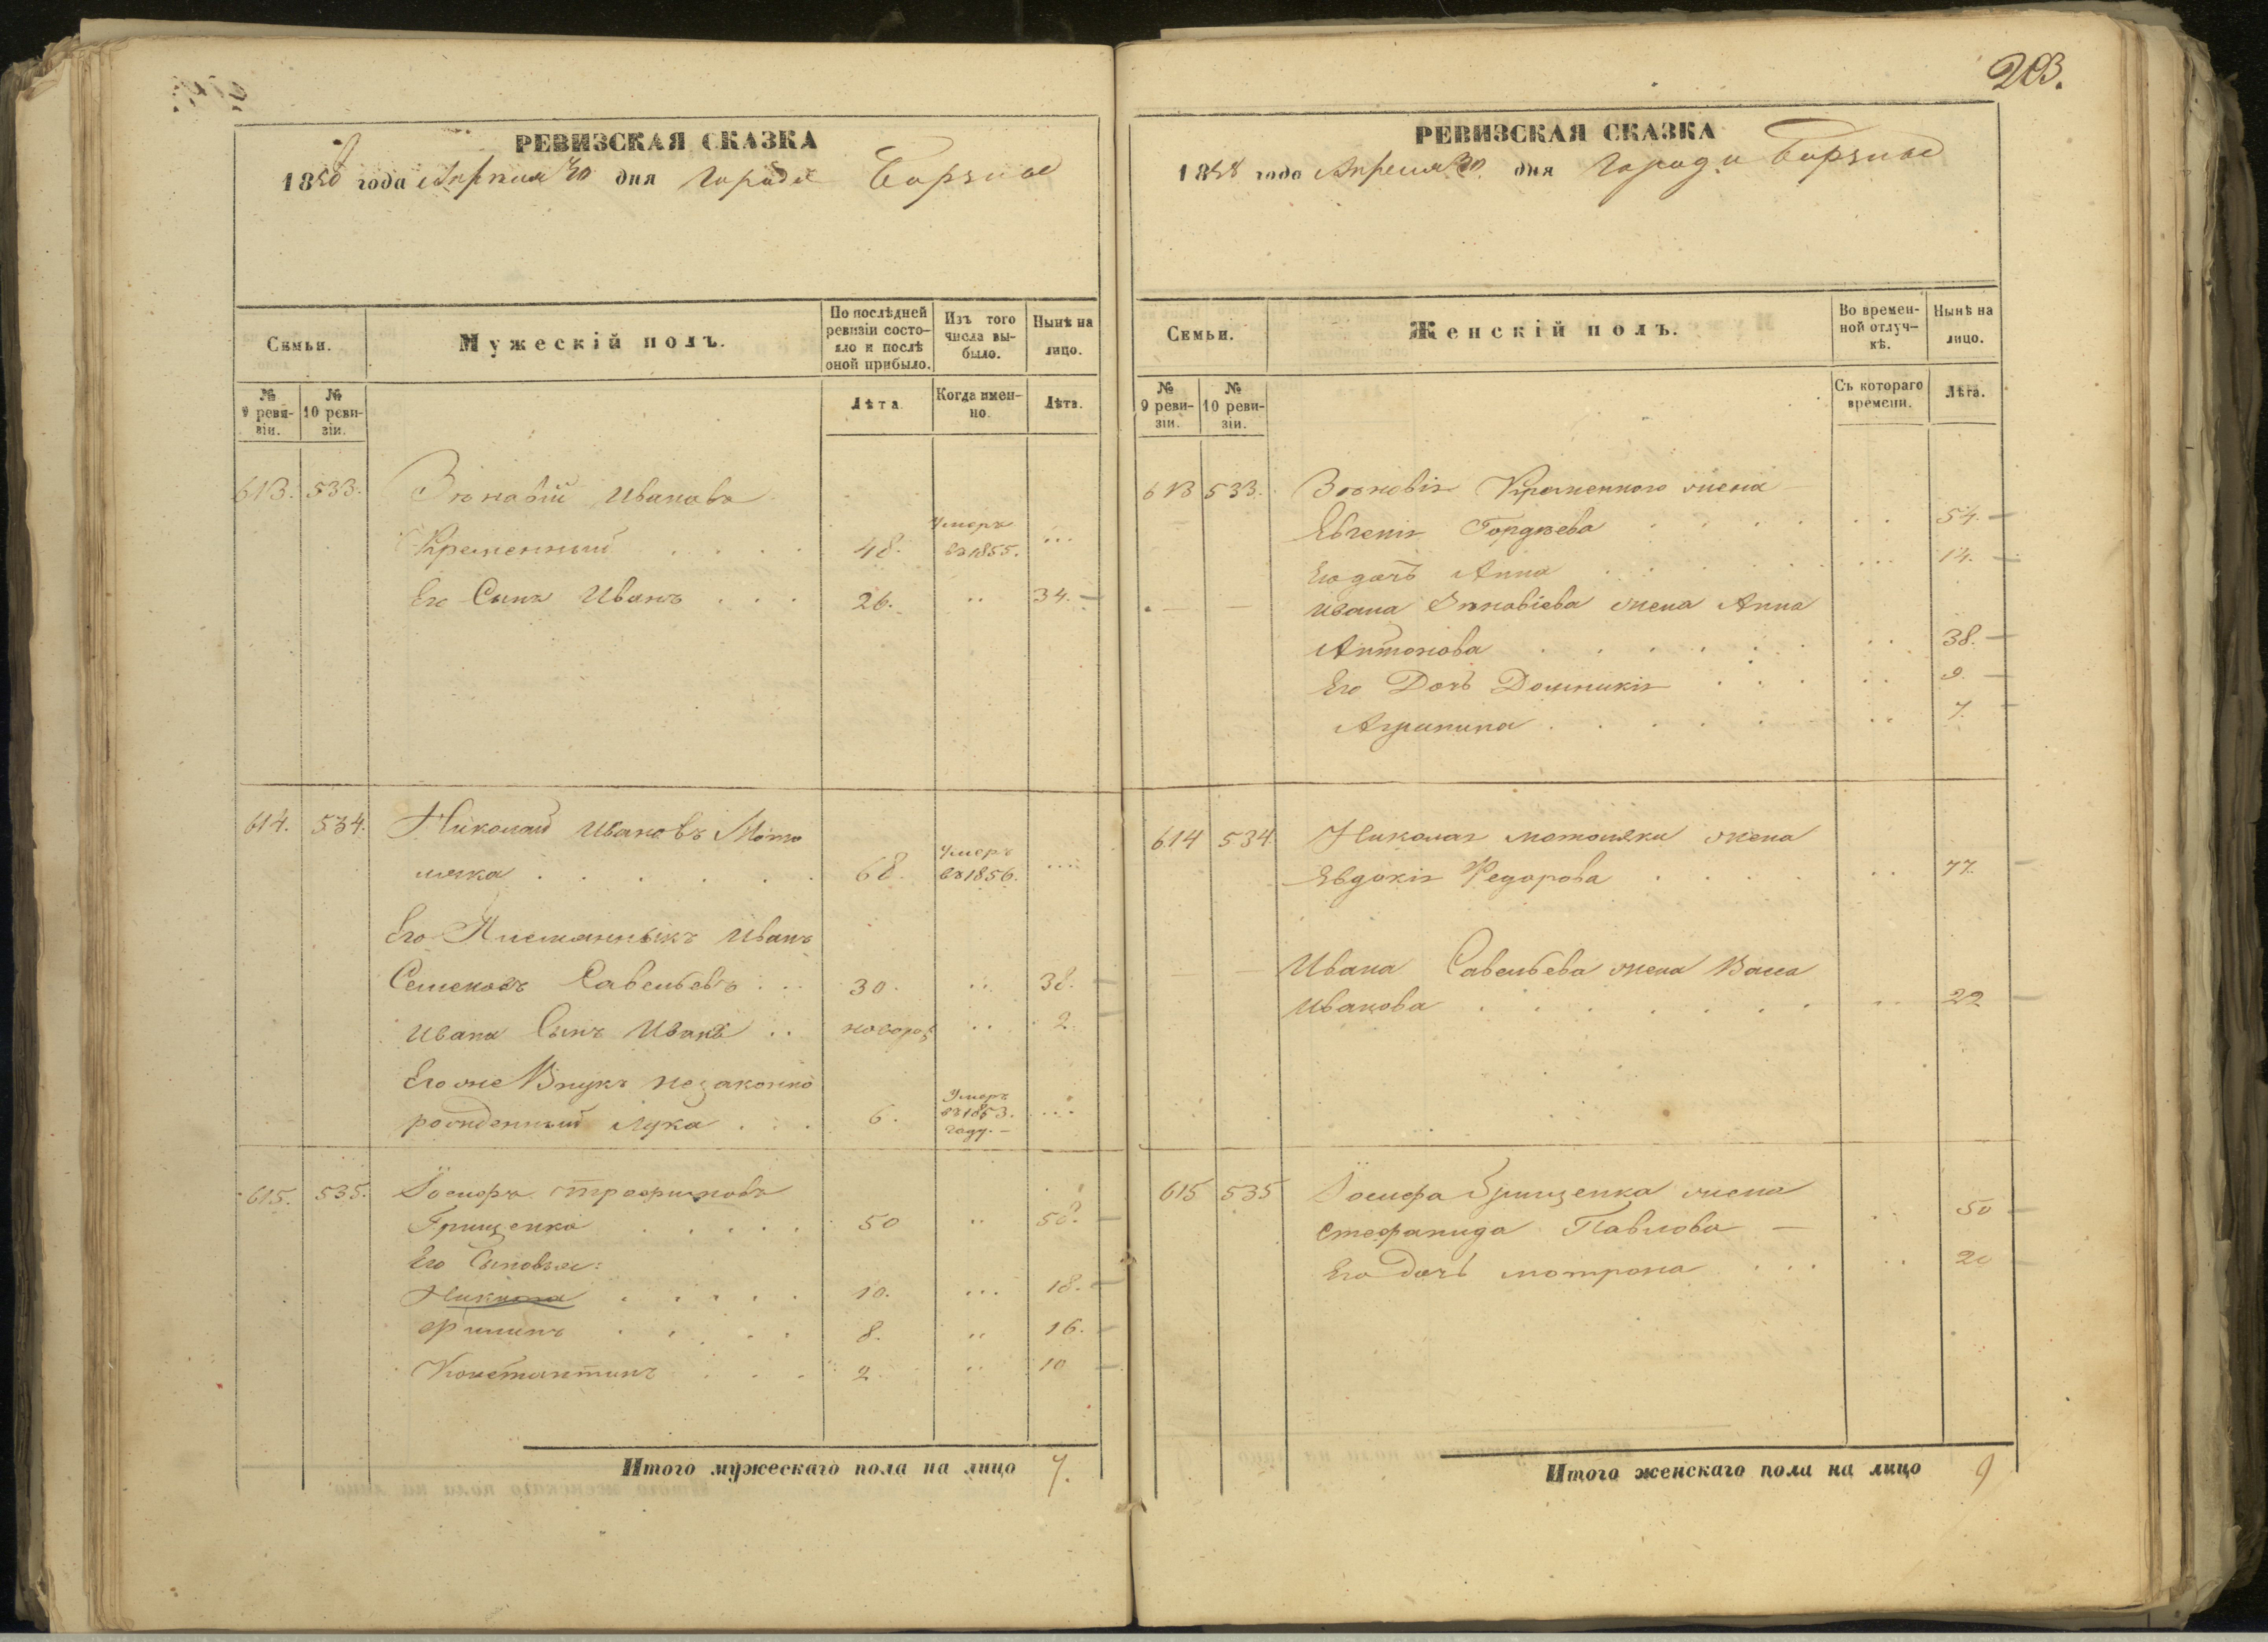 203.
РЕВИЗСКАЯ СКАЗКА
1858 года Апреля 30 дня Города Борзны
Семьи.
Мужескій полъ.
По послѣдней ревизіи состояло и послѣ оной прибыло.
Изъ того числа выбыло.
Нынѣ на лицо.
№ 9 ревизіи.
№ 10 ревизіи.
Лѣта.
Когда именно.
Лѣта.
613. 533. Зѣновій Ивановъ
Кременный . . . . 48. Умеръ въ 1855. ...
Его Сынъ Иванъ . . . 26. .. 34. —
614. 534. Николай Ивановъ Мото
ляка . . . . . . 68. Умеръ въ 1856. ....
Его Племянныкъ Иванъ
Семеновъ Савельевъ . . . 30. .. 38. —
Ивана Сынъ Иванъ .. новорож .. 2.
Его же Внукъ незаконно
рожденный Лука . . . 6. Умеръ въ 1853. году. — ...
615. 535. Іосифъ Трофимовъ
Грищенко . . . . . 50 .. 58. —
Его Сыновья:
Никита . . . . . 10. ... 18. —
Филипъ . . . . 8. .. 16. —
Константинъ . . . 2 .. 10 —
Итого мужескаго пола на лицо 7.
РЕВИЗСКАЯ СКАЗКА
1858 года Апреля 30 дня Города Борзны
Семьи.
Женскій полъ.
Во временной отлучкѣ.
Нынѣ на лицо.
№ 9 ревизіи.
№ 10 ревизіи.
Съ котораго времени.
Лѣта.
613 533. Зѣновія Кременного жена —
Евгенія Гордѣева . . . . . .. 54. —
Его дочь Анна . . . . . ... 14. —
Ивана Зѣновіева жена Анна
Антонова . . . . . . .. 38. —
Его Дочь Домникія . . . .. 9. —
Агрипина . . . . . .. 7. —
614 534. Николая мотоляки жена
Евдокія Федорова . . . . .. 77. —
Ивана Савельева жена Васса
Иванова . . . . . . . ... 22 —
615 535 Іосифа Грищенка жена
Стефанида Павлова — .. 50 —
Его дочь мотрона . . . .. 20 —
Итого женскаго пола на лицо 9